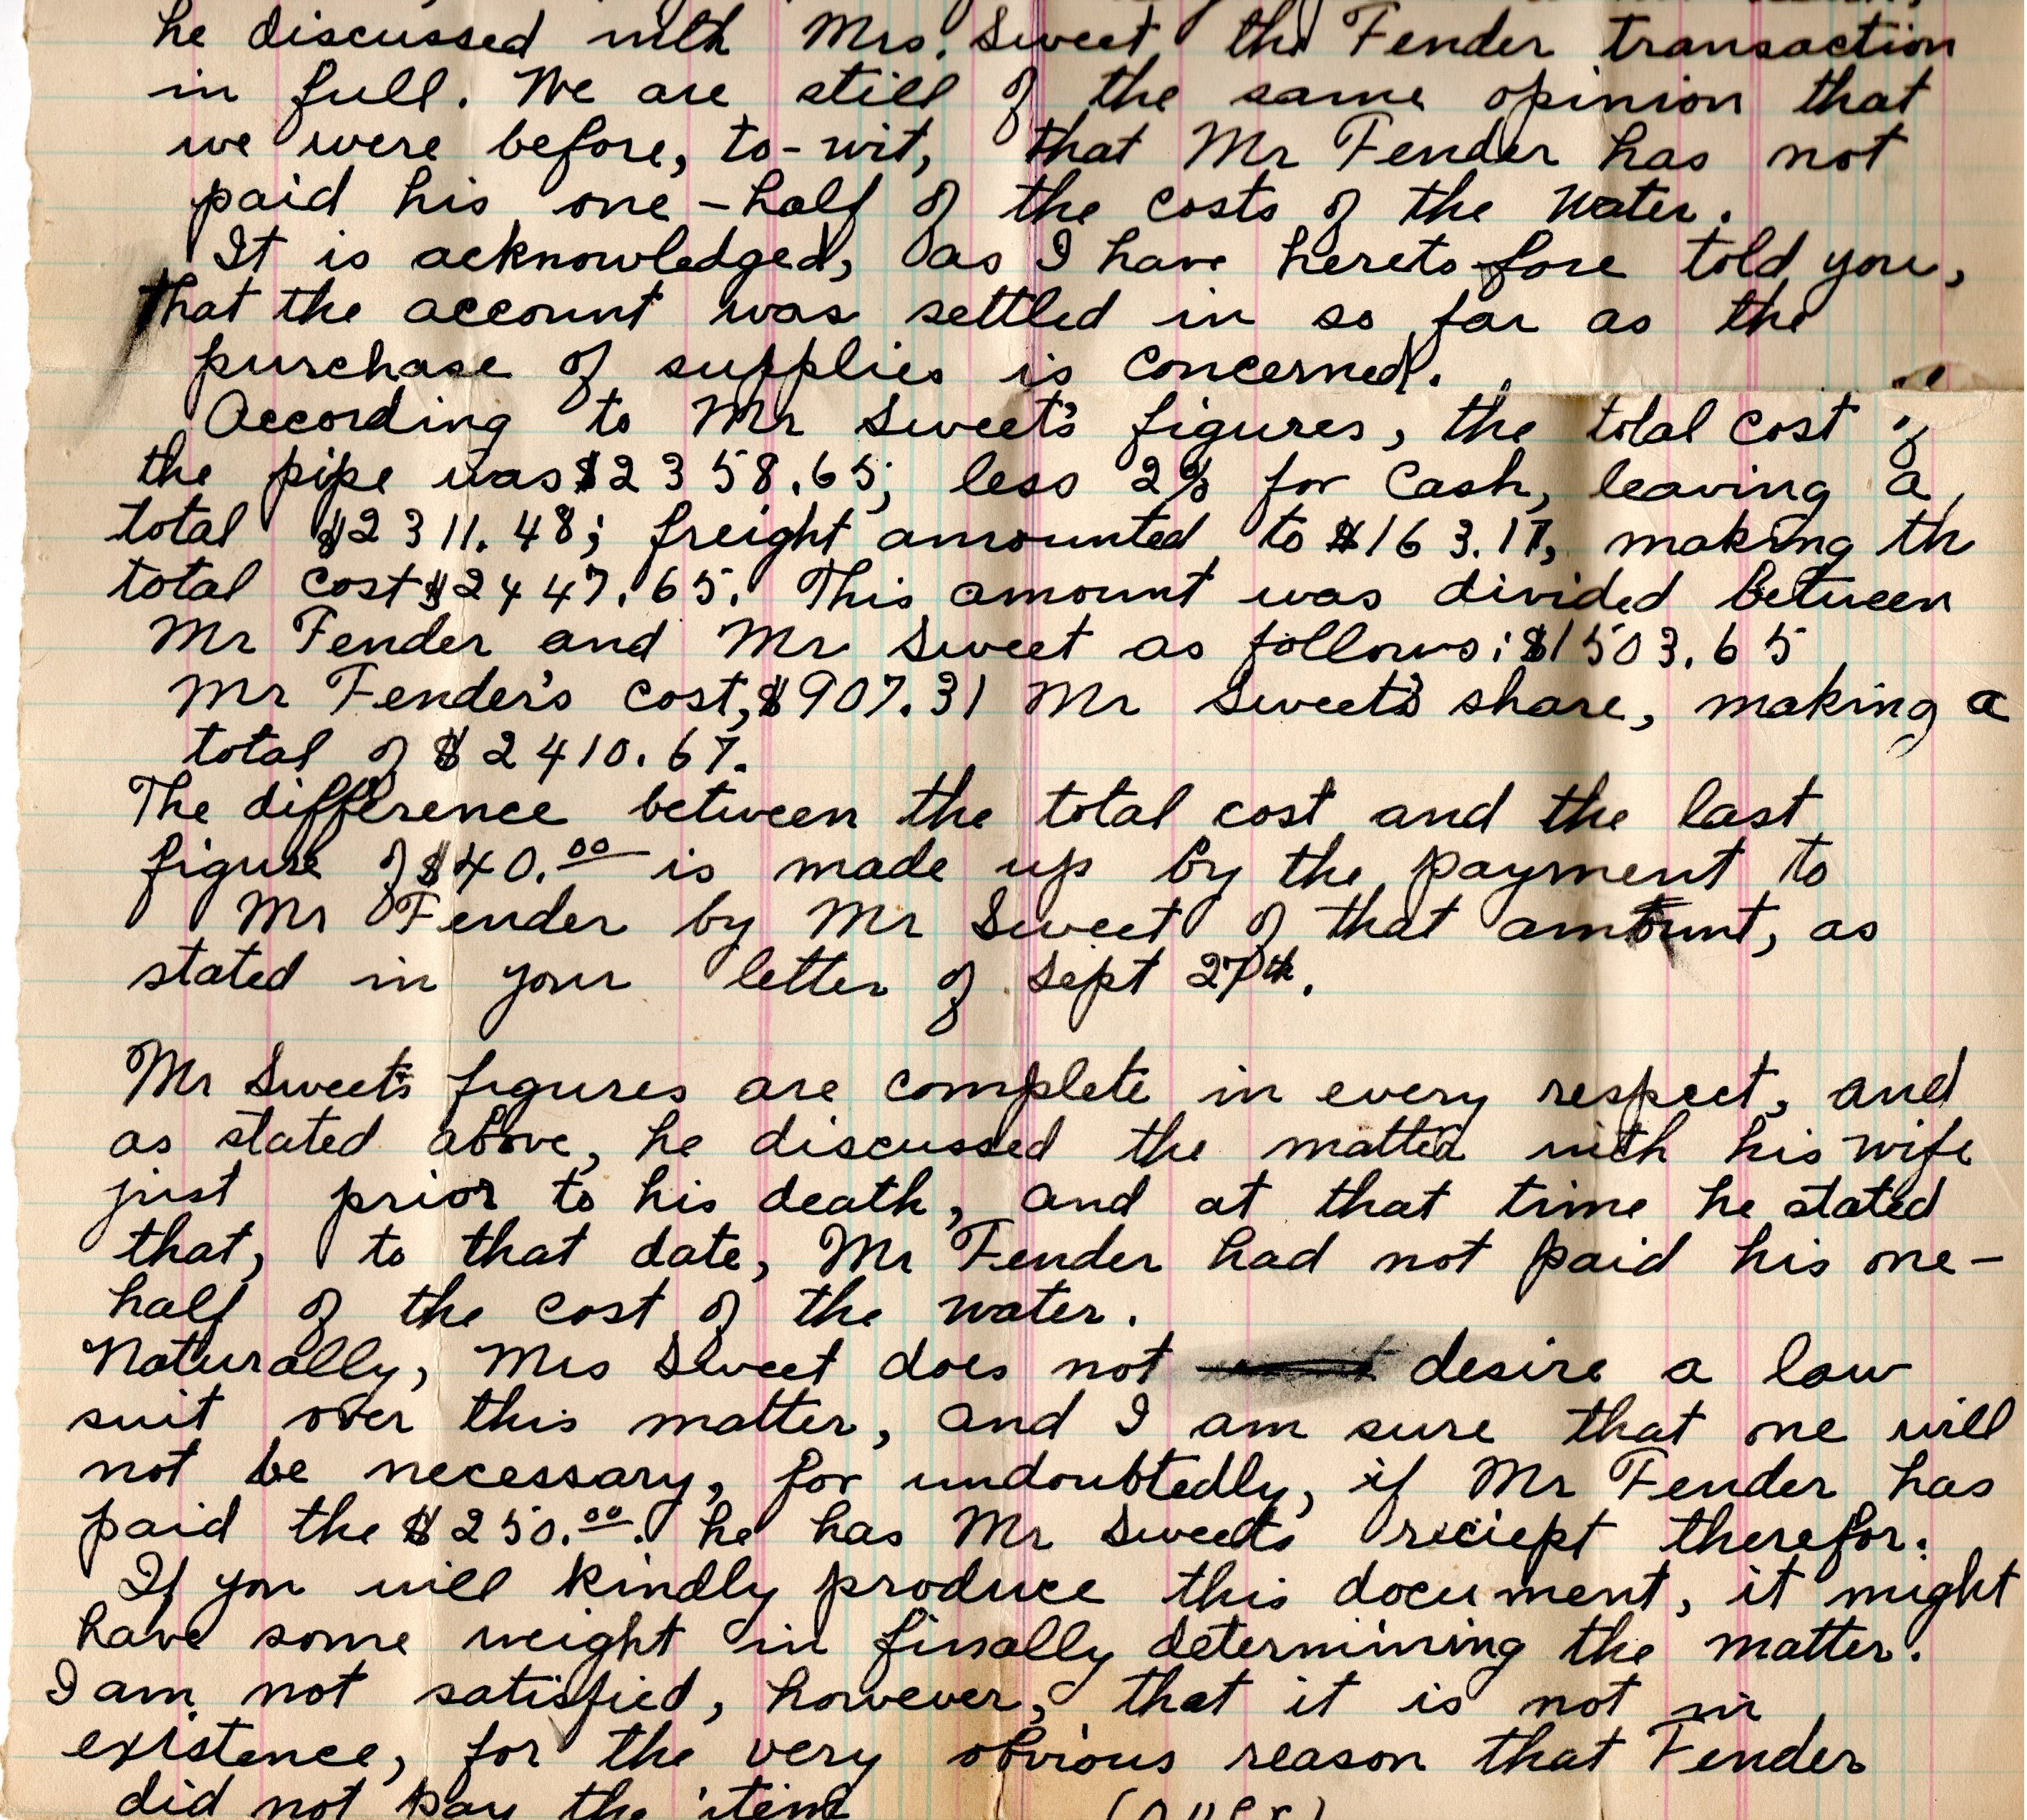 he discussed with Mrs. Sweet the Fender transaction
in full. We are still of the same opinion that
we were before, to-wit, that Mr Fender has not
paid his one-half of the costs of the water.
It is acknowledged, as I have heretofore told you,
that the account was settled in so far as the
purchase of supplies is concerned.
According to Mr Sweet's figures, the total cost of
the pipe was $2358.65; less 2% for cash, leaving a
total $2311.48; freight amounted to $163.17, making th
total cost $2447.65. This amount was divided between
Mr Fender and Mr Sweet as follows: $1503.65
Mr Fender's cost, $907.31 Mr Sweet's share, making a
total of $2410.67.
The difference between the total cost and the last
figure of $40.00 is made up by the payment to
Mr Fender by Mr Sweet of that amount, as
stated in your letter of Sept 27th.
Mr Sweet's figures are complete in every respect, and
as stated above, he discussed the matter with his wife
just prior to his death, and at that time he stated
that, to that date, Mr Fender had not paid his one-
half of the cost of the water.
Naturally, Mrs Sweet does not desire a law
suit over this matter, and I am sure that one will
not be necessary, for undoubtedly, if Mr Fender has
paid the $250.00. he has Mr Sweets reciept therefor.
If you will kindly produce this document, it might
have some weight in finally determining the matter.
I am not satisfied, however, that it is not in
existence, for the very obvious reason that Fender
did not pay the item (over)